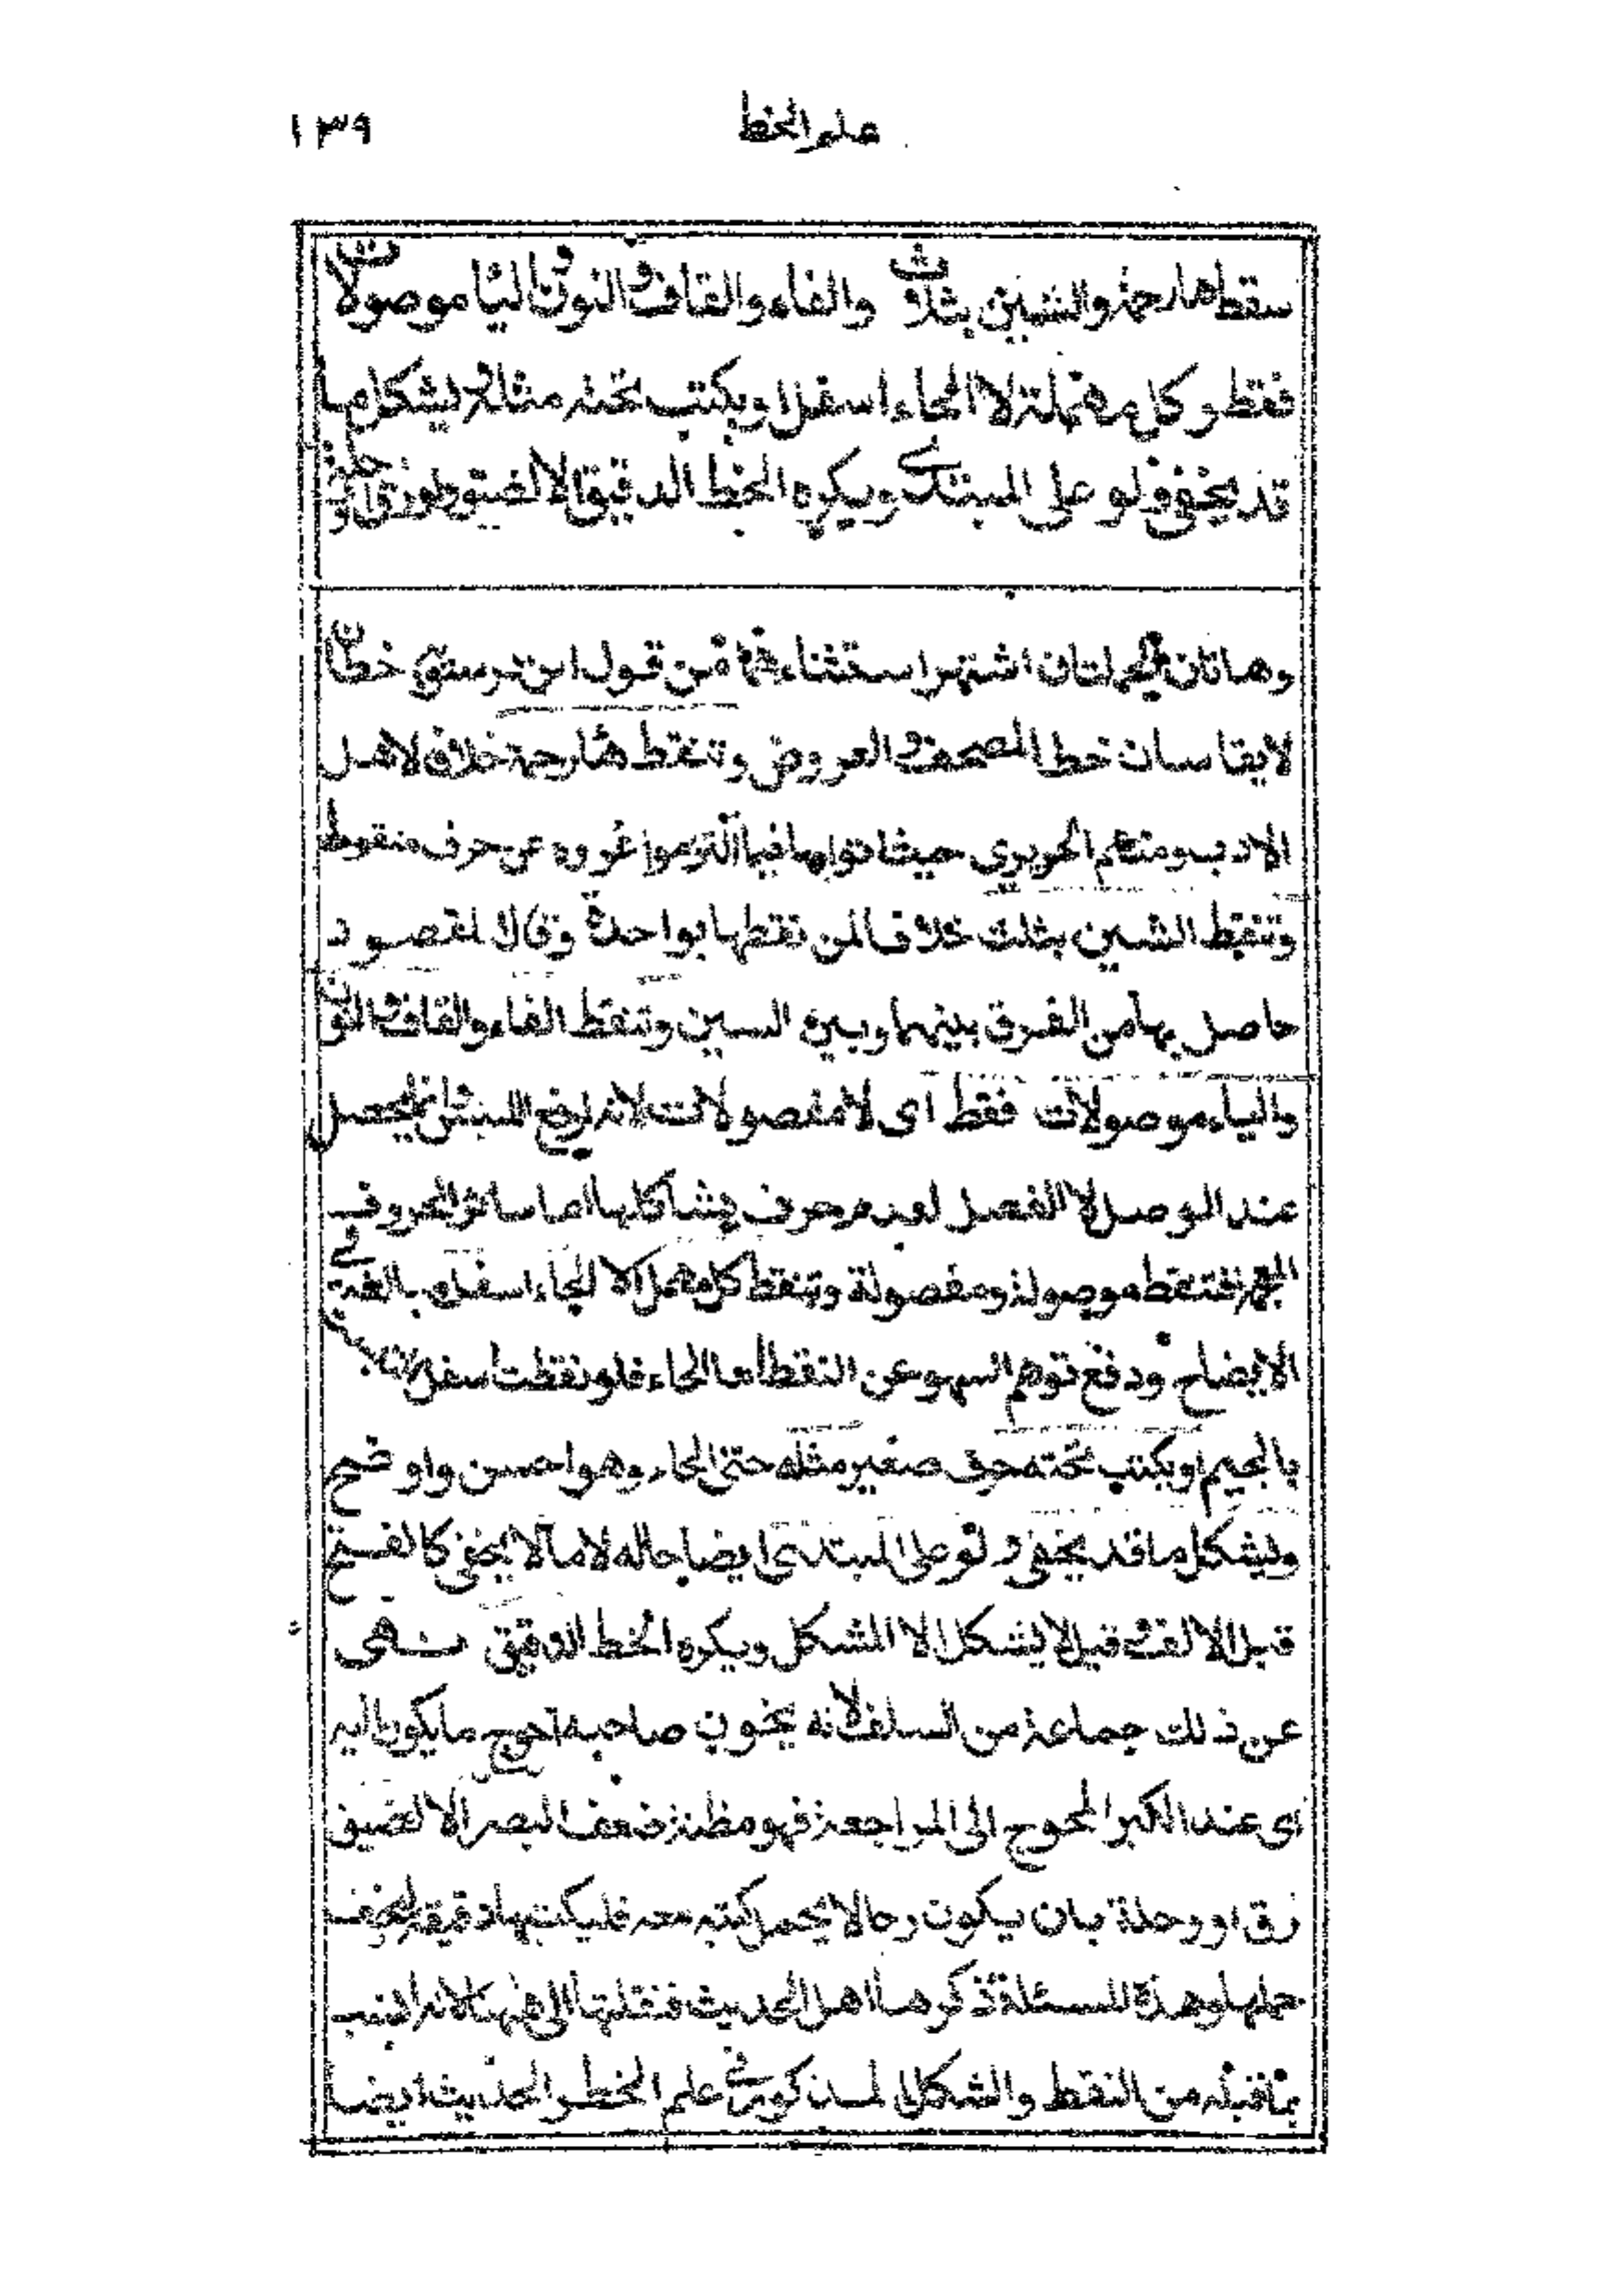 علم الخط
١٣٩
سقط هاء رحمة والشين بثلاث والفاء والقاف والنون واليا موصولات
فقط وكل مهملة لا الحاء اسفل او يكتب تحته مثله ويشكل ما
قد يخفى ولو على المبتدي ويكره الخط الدقيق الا لضيق رق او رحلة
وهاتان الجملتان اشتهر استثناءهما من قول ابن درستويه خطان
لا يقاسان خط المصحف والعروض وتنقط هاء رحمة خلافا لاهل
الادب ومنهم الحريري حيث اتوا بها فيما التزموا عروه عن حرف منقوط
وتنقط الشين بثلث خلافا لمن نقطها بواحدة وقال المقصود
حاصل بها من الفرق بينها وبين السين وتنقط الفاء والقاف والنون
والياء موصولات فقط اى لا مفصولات لانه لرفع اللبس انما يحصل
عند الوصل لا الفصل لعدم حرف يشاكلها اما سائر الحروف
المعجمة فتنقط موصولة ومفصولة وتنقط كل مهمل الا الحاء اسفل مبالغة في
الايضاح ودفع توهم السهو عن النقط اما الحاء فلو نقطت اسفل لالتبست
بالجيم او يكتب تحته حرف صغير مثله حتى الحاء وهو احسن واوضح
ويشكل ما قد يخفى ولو على المبتدي ايضاحا له لا ما لا يخفى كالفتح
قبل الالف وقيل لا يشكل الا المشكل ويكره الخط الدقيق نهى
عن ذلك جماعة من السلف لانه يخون صاحبه احوج ما يكون اليه
اى عند الكبر المحوج الى المراجعة فهو مظنة ضعف البصر الا لضيق
رق او رحلة بان يكون رحالا يحمل كتبه معه فليكتبها دقيقة ليخف
حملها وهذه المسئلة ذكرها اهل الحديث فنقلتها الى هنا لانه انسب
بما قبله من النقط والشكل المذكور في علم الخط والحديث ايضا